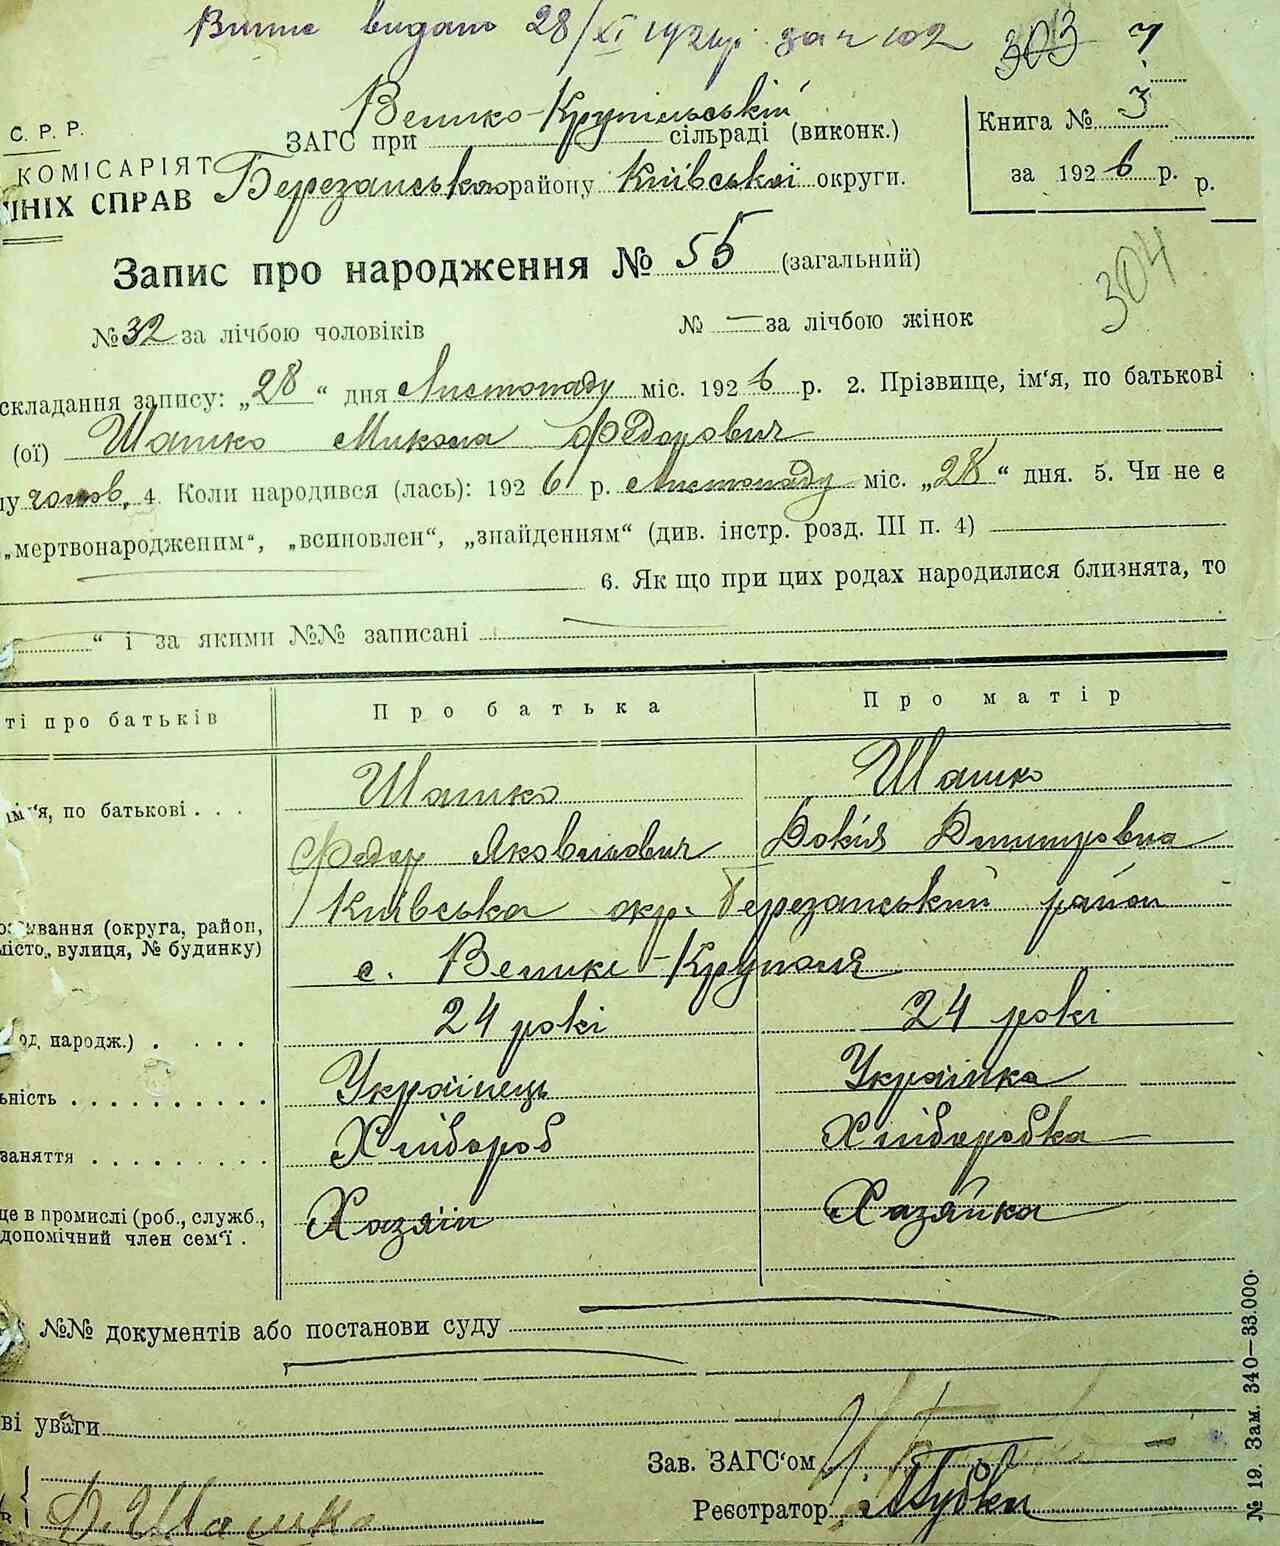 Видано 28/XI 1926 р. за ч 102 303
Велико-Крупільській
С. Р. Р.
ЗАГС при сільраді (виконк.)
Книга № 3
КОМІСАРІЯТ
Березанського району Київської округи.
за 1926 р. р.
ШНІХ СПРАВ
Запис про народження № 55 (загальний)
304
№ 32 за лічбою чоловіків № — за лічбою жінок
складання запису: „28“ дня Листопаду міс. 1926 р. 2. Прізвище, ім‘я, по батькові
(ої) Шашко Микола Федорович
чолов. 4. Коли народився (лась): 1926 р. Листопаду міс. „28“ дня. 5. Чи не є
„мертвонародженим“, „всиновлен“, „знайденням“ (див. інстр. розд. III п. 4)
6. Як що при цих родах народилися близнята, то
“ і за якими №№ записані
ті про батьків Про батька Про матір
Шашко Шашко
ім‘я, по батькові . . .
Федор Яковльович Докія Димитровна
Київська окр. Березанський район
ування (округа, район,
місто, вулиця, № будинку)
с. Велике-Крупол‘я
24 рокі 24 рокі
од народж.) . . . .
Українець Українка
ьність . . . . . . . . . .
Хлібороб Хліборобка
заняття . . . . . . . . .
Хазяїн Хазяйка
це в промислі (роб., служб.,
допомічний член сем‘ї .
№№ документів або постанови суду
ві уваги
Зав. ЗАГС‘ом
Реєстратор
Д. Шашко
№ 19. Зам. 340—33.000.